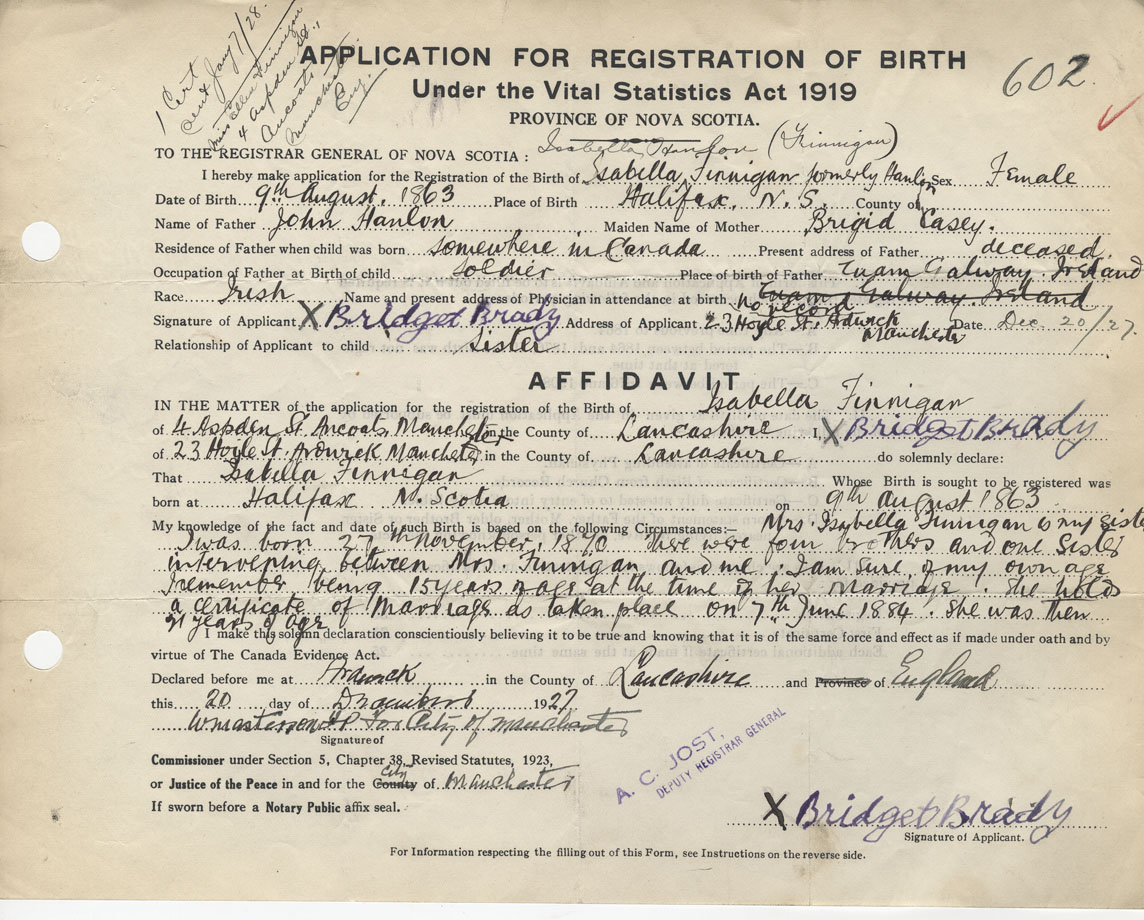 1 Cert
sent Jany 7/28.
Miss Ellen Finnigan
4 Aspden St.,
Ancoats
Manchester
Eng.
APPLICATION FOR REGISTRATION OF BIRTH
602
Under the Vital Statistics Act 1919
PROVINCE OF NOVA SCOTIA.
Isabella Hanlon (Finnigan)
TO THE REGISTRAR GENERAL OF NOVA SCOTIA:
I hereby make application for the Registration of the Birth of Isabella Finnigan formerly Hanlon Sex Female
Date of Birth 9th August. 1863 Place of Birth Halifax. N. S. County of
Name of Father John Hanlon Maiden Name of Mother Brigid Casey.
Residence of Father when child was born somewhere in Canada Present address of Father deceased
Occupation of Father at Birth of child soldier Place of birth of Father Tuam Galway. Ireland
Race Irish Name and present address of Physician in attendance at birth Tuam Galway Ireland
no record
Signature of Applicant X Bridget Brady Address of Applicant 23 Hoyle St. Ardwick Manchester Date Dec 20/27.
Relationship of Applicant to child sister
AFFIDAVIT
IN THE MATTER of the application for the registration of the Birth of Isabella Finnigan
of 4 Aspden St Ancoats Manchester in the County of Lancashire I, X Bridget Brady
of 23 Hoyle St. Ardwick Manchester in the County of Lancashire do solemnly declare:
That Isabella Finnigan Whose Birth is sought to be registered was
born at Halifax N. Scotia on 9th August 1863
My knowledge of the fact and date of such Birth is based on the following Circumstances:— Mrs. Isabella Finnigan is my sister
I was born 27th November, 1870 There were four brothers and one Sister
intervening between Mrs. Finnigan and me. I am sure of my own age
I remember being 15 years of age at the time of her Marriage. She holds
a certificate of Marriage as taken place on 7th June 1884. She was then
21 years of age
I make this solemn declaration conscientiously believing it to be true and knowing that it is of the same force and effect as if made under oath and by
virtue of The Canada Evidence Act.
Declared before me at Ardwick in the County of Lancashire and Province of England
this 20 day of December 1927
W Masterson JP for City of Manchester
Signature of
Commissioner under Section 5, Chapter 38, Revised Statutes, 1923,
or Justice of the Peace in and for the County City of Manchester
If sworn before a Notary Public affix seal.
A. C. JOST,
DEPUTY REGISTRAR GENERAL
X Bridget Brady
Signature of Applicant.
For Information respecting the filling out of this Form, see Instructions on the reverse side.